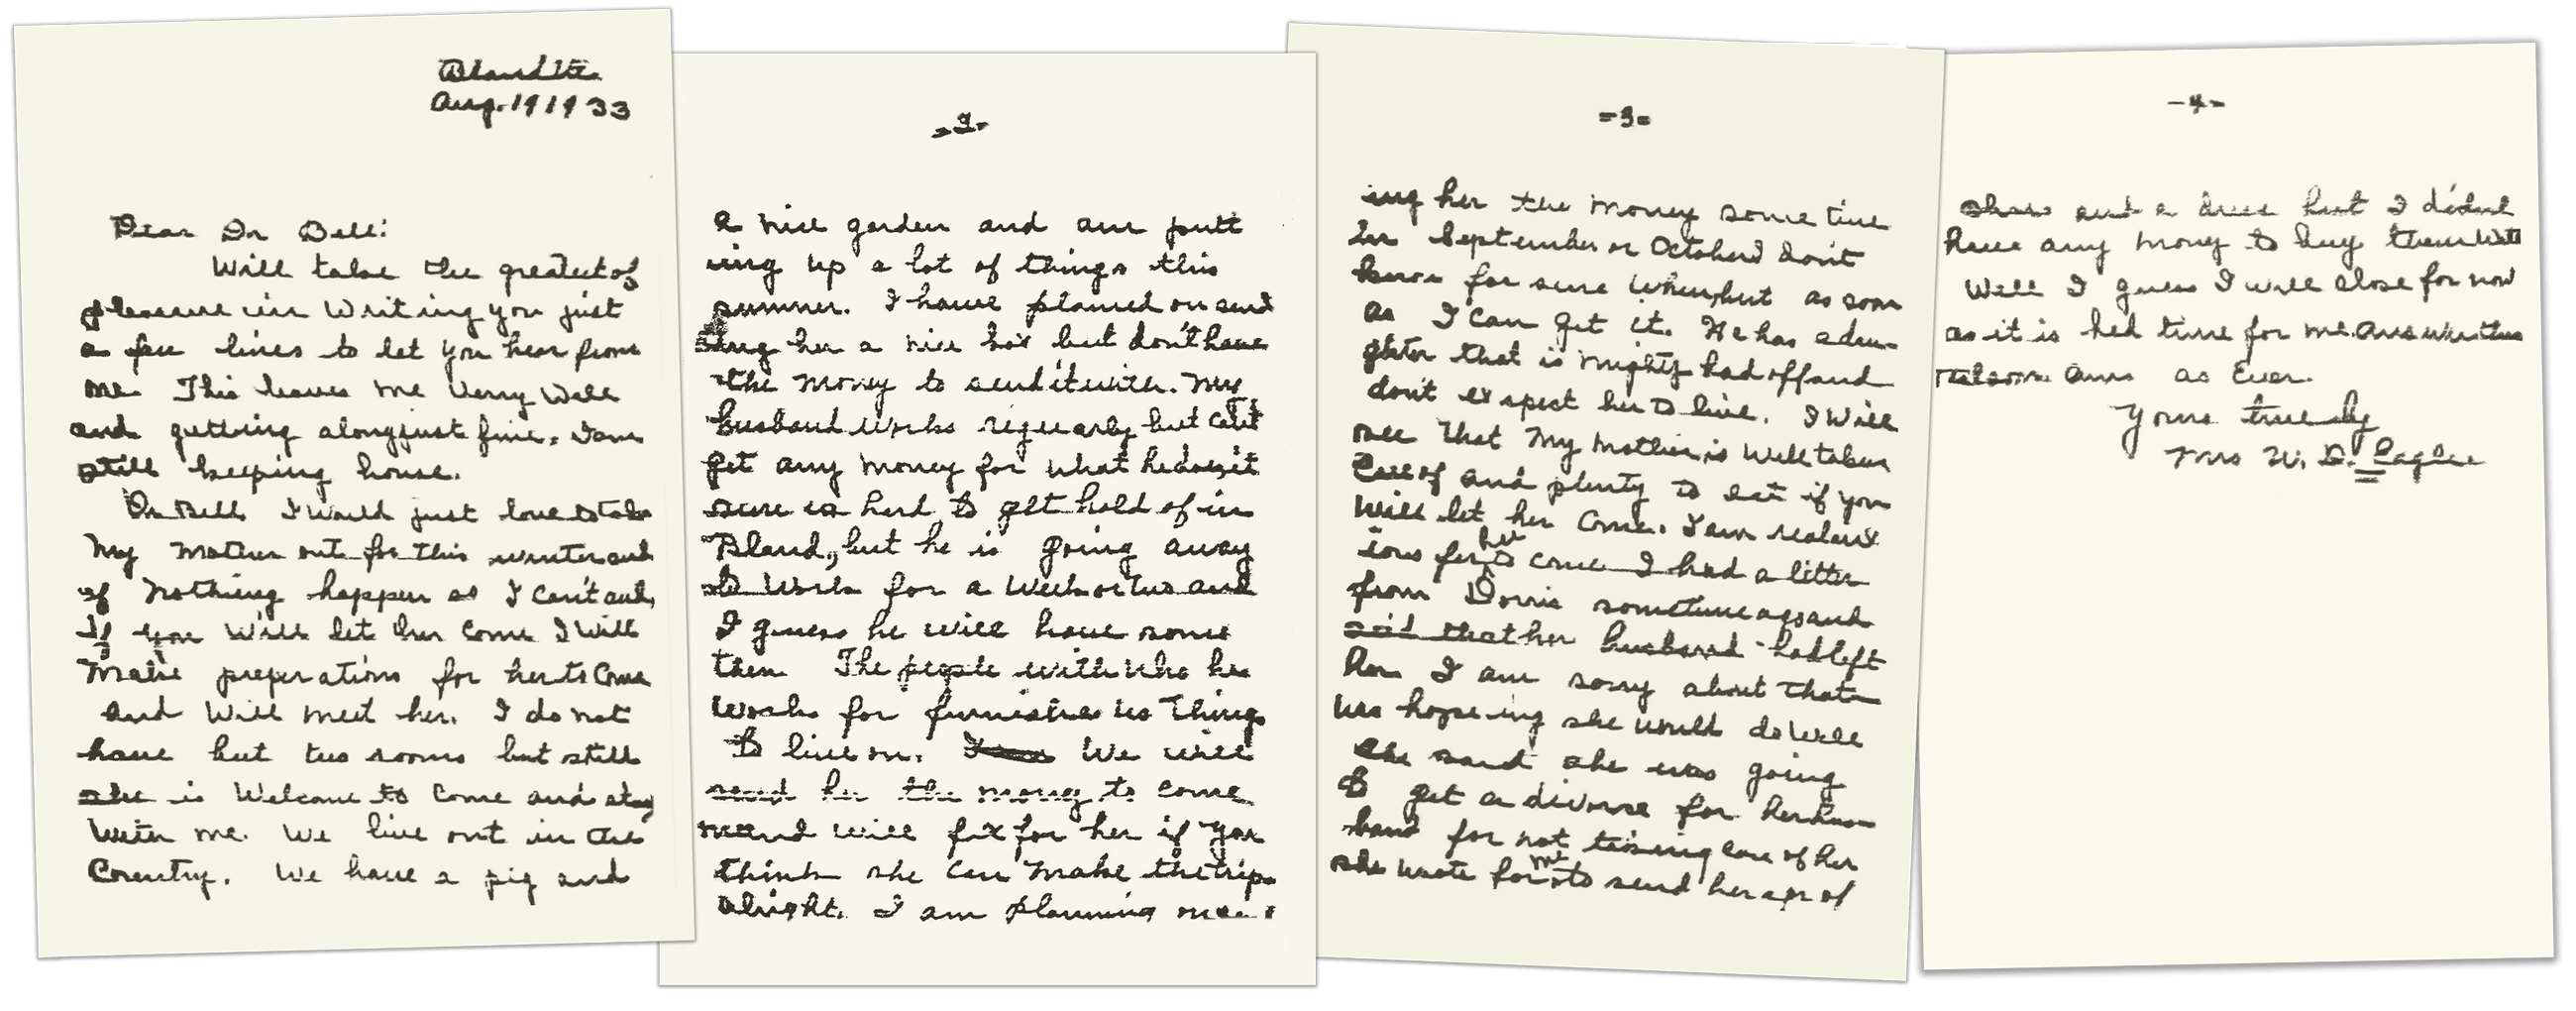 Bland Va.
Aug. 19 1933
Dear Dr Bell:
Will take the greatest of
pleasure in Writing you just
a few lines to let you hear from
me. This leaves me Verry Well
and guttring along just fine. I am
still keeping house.
Dr Bell I Would just love to take
My Mother out for this winter and
if Nothing happen as I can't and,
If you Will let her Come I Will
Make preperations for her to Come
and Will meet her. I do not
have but two rooms but still
she is Welcome to Come and stay
With me. We live out in the
Country. We have a pig and
-2-
a nice garden and are putt
ing up a lot of things this
summer. I have planned on send
ing her a nice box but don't have
the Money to send it with. My
husband Works reguarly but can't
get any Money for what he does, it
sure is hard to get hold of in
Bland, but he is going away
to Work for a Week or two and
I guess he will have some
then The people with who he
Works for furnishes us Things
to live on. We will
send her the money to come
and will fix for her if you
think she Can Make the trip
alright. I am planning on
-3-
ing her the Money some time
In September or October I don't
know for sure When, but as soon
as I Can get it. He has a dau-
ghter that is mighty bad off and
don't expect her to live. I Will
see That My Mother is Well taken
Care of and plenty to eat if you
Will let her Come. I am real anx
ious for her to come I had a letter
from Dorris sometime ago and
said that her husband had left
her I am sorry about That
was hope ing she would do Well
She said she was going
to get a divorse for her hus-
band for not taking care of her
she wrote for me to send her a pr of
-4-
shoes and a dress but I didn't
have any Money to buy them With
Well I guess I will close for now
as it is bed time for me. Answer this
as Ever.
Yours truely
Mrs W. D. Eagle